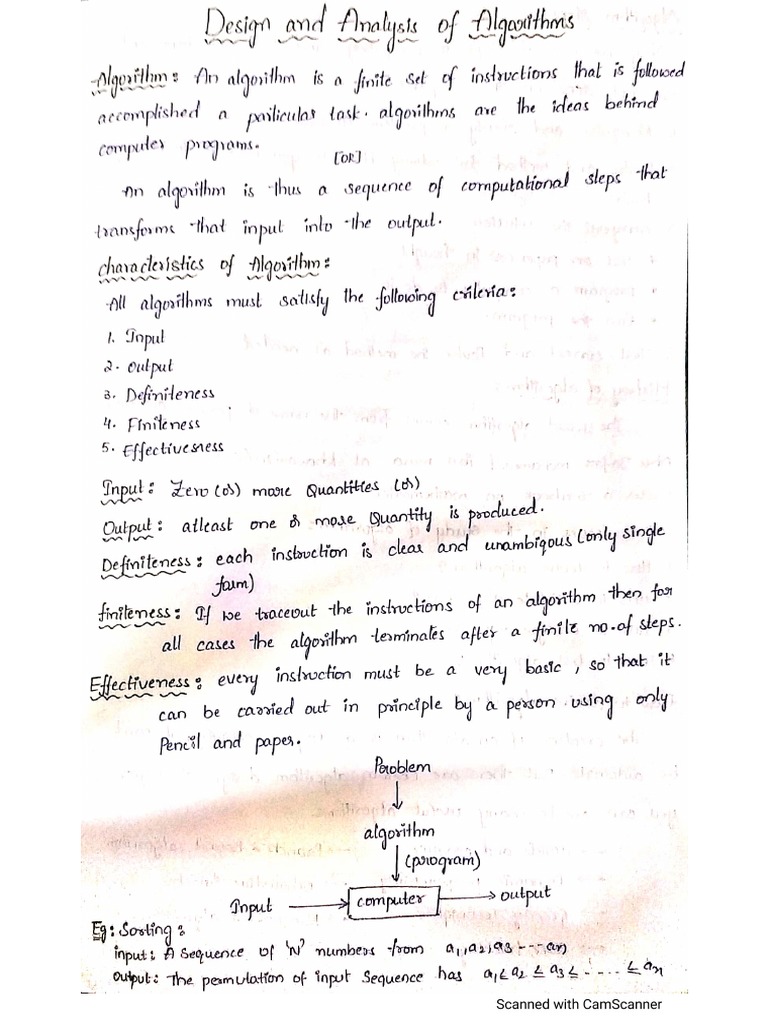 Design and Analysis of Algorithms
Algorithm: An algorithm is a finite set of instructions that is followed
accomplished a particular task. algorithms are the ideas behind
computer programs.
[OR]
An algorithm is thus a sequence of computational steps that
transforms that input into the output.
characteristics of Algorithm:
All algorithms must satisfy the following criteria:
1. Input
2. output
3. Definiteness
4. Finiteness
5. Effectiveness
Input: Zero (or) more Quantities (or)
Output: atleast one or more Quantity is produced.
Definiteness: each instruction is clear and unambiqous (only single
farm)
finiteness: If we traceout the instructions of an algorithm then for
all cases the algorithm terminates after a finite no.of steps.
Effectiveness: every instruction must be a very basic, so that it
can be carried out in principle by a person using only
Pencil and paper.
Problem
algorithm
(program)
Input computer output
Eg: Sorting:
input: A sequence of 'N' numbers from a1,a2,a3 --- an
output: The permutation of input Sequence has a1 ≤ a2 ≤ a3 ≤ ---- ≤ an
Scanned with CamScanner